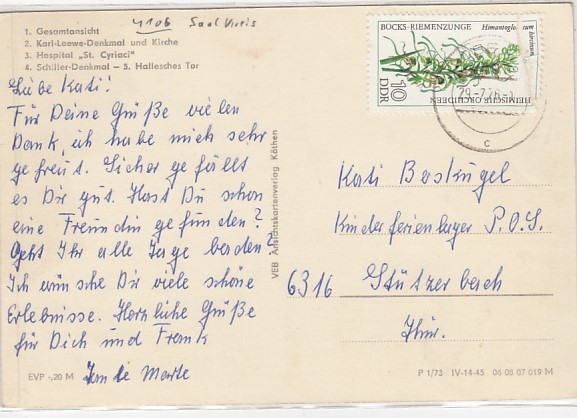 4106 Saalkreis
1. Gesamtansicht
2. Karl-Loewe-Denkmal und Kirche
3. Hospital „St. Cyriaci“
4. Schiller-Denkmal – 5. Hallesches Tor
Liebe Kati!
Für Deine Grüße vielen
Dank, ich habe mich sehr
gefreut. Sicher gefällt
es Dir gut. Hast Du schon
eine Freundin gefunden?
Geht Ihr alle Tage baden?
Ich wünsche Dir viele schöne
Erlebnisse. Herzliche Grüße
für Dich und Frank
Tante Marte
EVP -,20 M
VEB Ansichtskartenverlag Köthen
BOCKS-RIEMENZUNGE
HEIMISCHE ORCHIDEEN
DDR
10
29.-7.76
c
Kati
Kinderferienlager P.O.S.
6316 Stützerbach
Thür.
P 1/73 IV-14-45 06 08 07 019 M